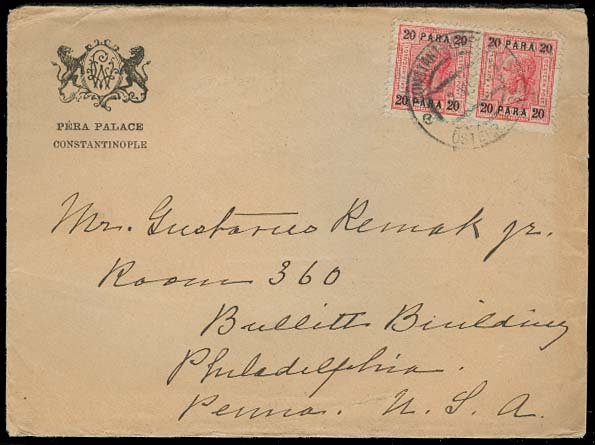 20 PARA 20
20 PARA 20
20 PARA 20
20 PARA 20
PÉRA PALACE
CONSTANTINOPLE
Mr. Gustavus Remak jr.
Room 360
Bullitt Building
Philadelphia.
Penna. U. S. A.